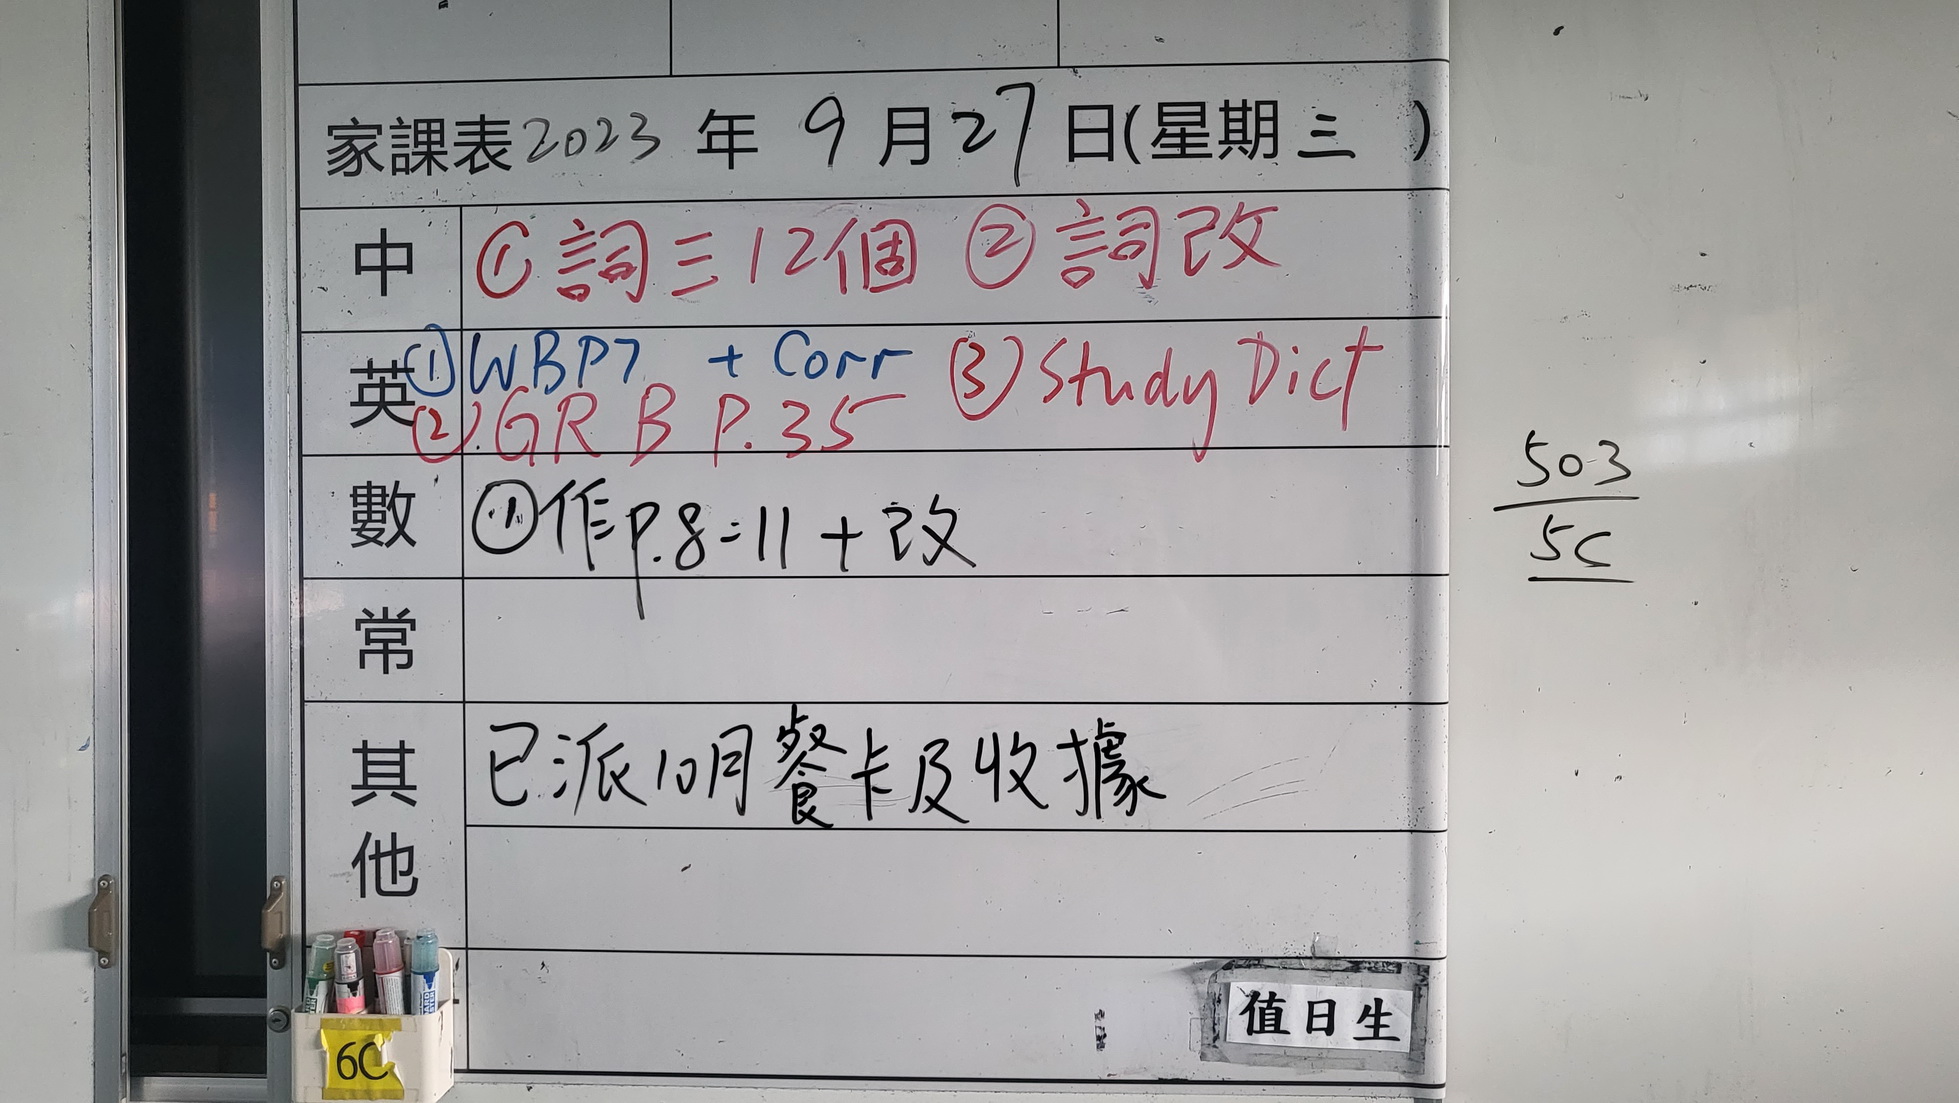 家課表2023年9月27日(星期三)
中 ①詞三12個 ②詞改
英 ①WBP7 + Corr ③Study Dict
②GRB P.35
數 ①作P.8-11+改
常
其他 已派10月餐卡及收據
值日生
6C
503
5C